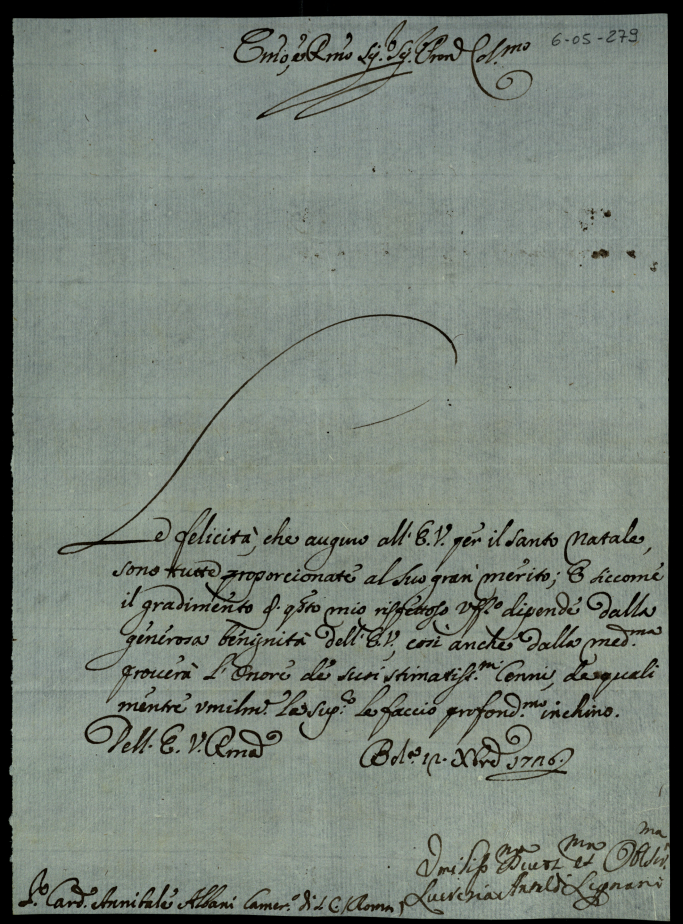 6-05-279
Em̃o, e Rm̃o Sig.r Sig.r Pron Col.mo
Le felicità, che auguro all' E.V. per il Santo Natale,
sono tutte proporcionate al suo gran merito; E siccome
il gradimento di q̃sto mio rispettoso Uff.o dipende dalla
generosa benignità dell' E.V., così anche dalla med.ma
proverà l'Onore de suoi stimatiss.mi Cenni, de quali
mentre umilm.e La sup.co le faccio profond.mo inchino.
Dell' E. V. Rma
Bol.a 12. Xbre 1726
Umiliss.ma Devot.ma et Obl.ma Ser.
Lucrezia Legnani
S.r Card.e Annibale Albani Camer.o di S. C. Roma